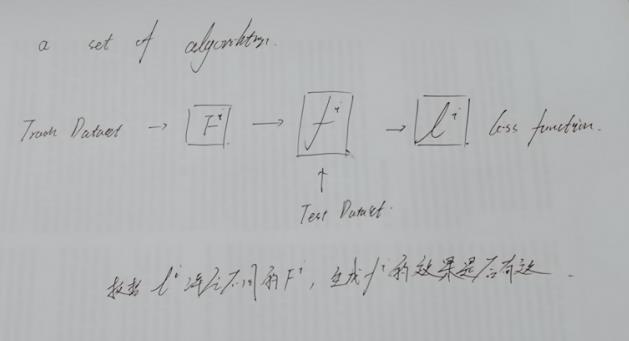 a set of algorithms.
Train Dataset → F^i → f^i → l^i loss function.
↑
Test Dataset.
根据 l^i 评估不同的 F^i, 生成 f^i 的效果是否有效.